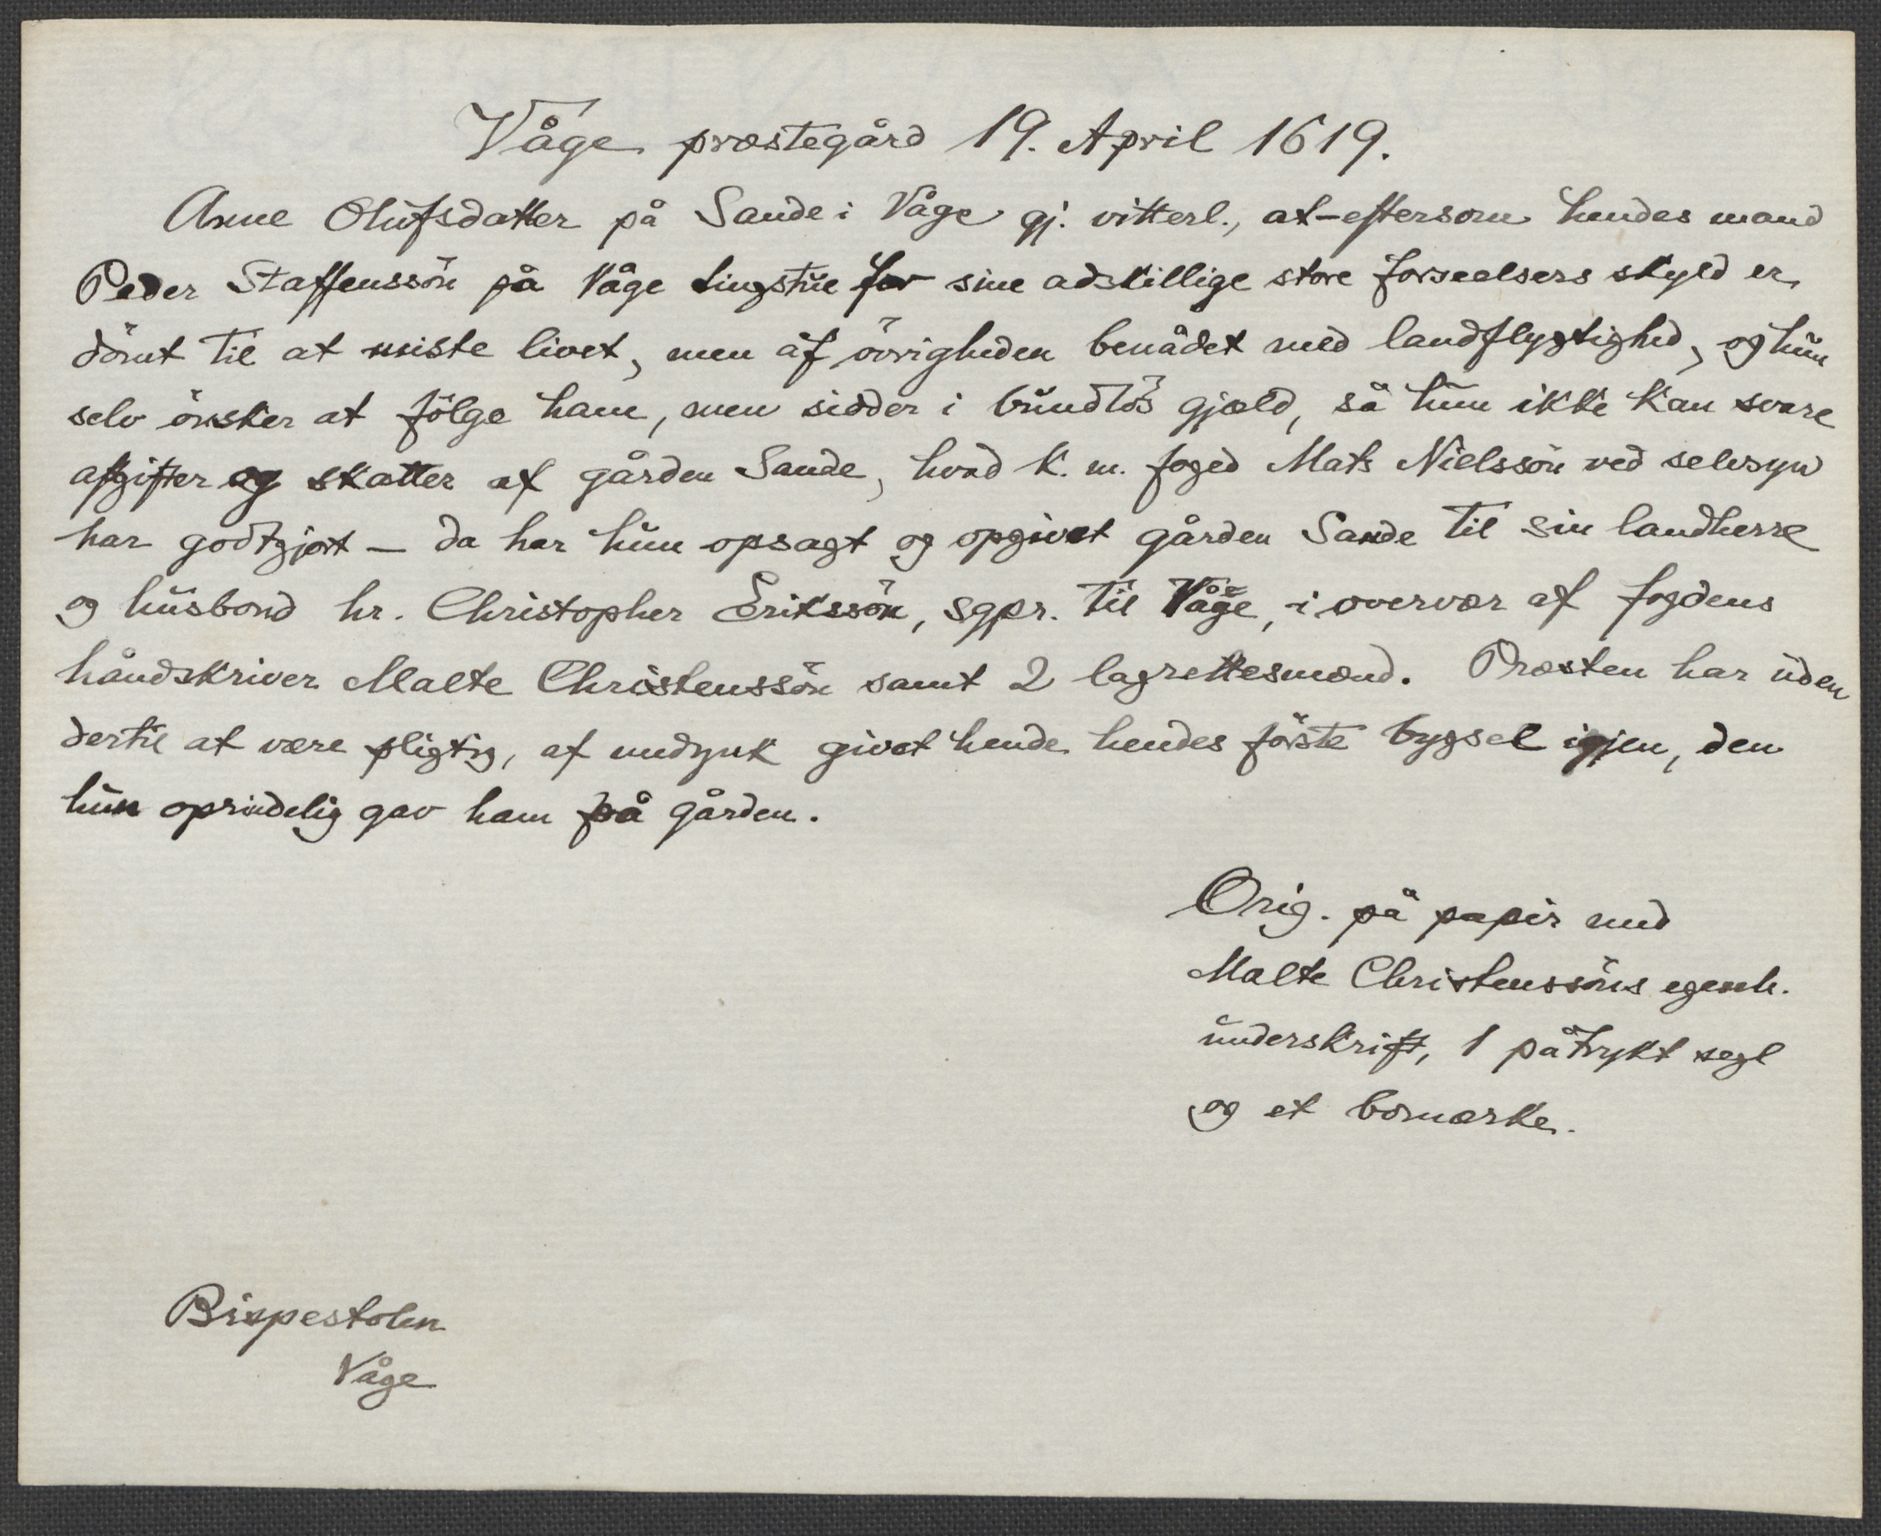 Våge præstegård 19. April 1619.
Anne Olufsdatter på Sande i Våge gj. vitterl., at – eftersom hendes mand
Peder Staffenssön på Våge tingstue for sine adskillige store forseelsers skyld er
dömt til at miste livet, men af övrigheden benådet med landflygtighed, og hun
selv önsker at fölge ham, men sidder i bundlös gjæld, så hun ikke kan svare
afgifter og skatter af gården Sande, hvad k. m. foged Mats Nielssön ved selvsyn
har godtgjort – da har hun opsagt og opgivet gården Sande til sin landherre
og husbond hr. Christopher Erikssön, sgpr. til Våge, i overvær af fogdens
håndskriver Malte Christenssön samt 2 lagrettesmænd. Præsten har uden
dertil at være pligtig, af medynk givet hende hendes förste bygsel igjen, den
hun oprindelig gav ham på gården.
Orig. på papir med
Malte Christenssöns egenh.
underskrift, 1 påtrykt segl
og et bomærke.
Bispestolen
Våge